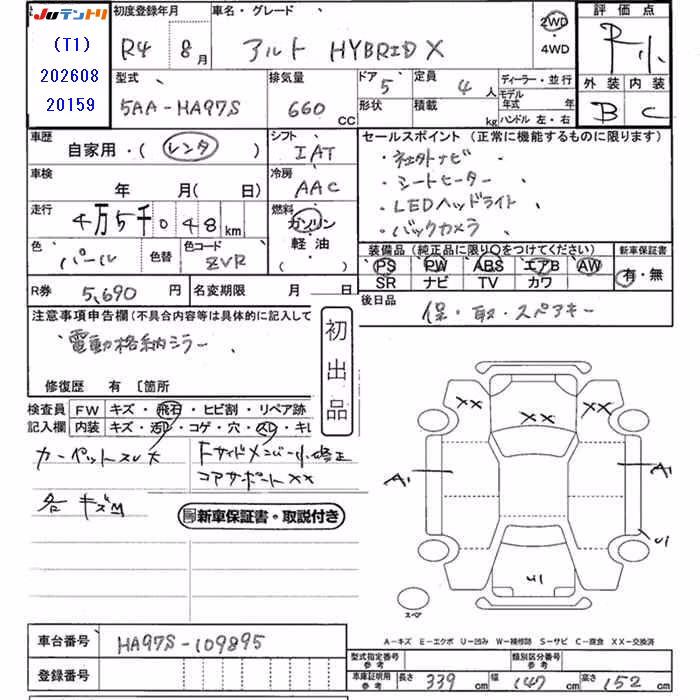 JUテントリ
(T1)
202608
20159
初度登録年月
R4 8月
車名・グレード
アルト HYBRID X
2WD
4WD
評価点
R小
外装 内装
B C
型式
5AA-HA97S
排気量
660 CC
ドア 5
形状
定員 4人
積載 kg
ディーラー・並行
モデル年式 年
ハンドル 左・右
車歴
自家用・(レンタ)
シフト
IAT
セールスポイント (正常に機能するものに限ります)
・社外ナビ
・シートヒーター
・LEDヘッドライト
・バックカメラ
車検
年 月( 日)
冷房
AAC
走行
4万5千048km
燃料
ガソリン
軽油
( )
色
パール
色替
色コード
ZVR
装備品 (純正品に限り○をつけてください)
PS PW ABS エアB AW
SR ナビ TV カワ
新車保証書
有・無
R券 5,690円
名変期限 月 日
後日品
保・取・スペアキー
注意事項申告欄(不具合内容等は具体的に記入して
電動格納ミラー
修復歴 有 〔箇所
初出品
検査員記入欄
FW キズ・飛石・ヒビ割・リペア跡
内装 キズ・汚レ・コゲ・穴・スレ・キレ
カーペットスレ大
Fサイドメンバー小修正
コアサポートXX
各キズ
新車保証書・取説付き
XX
XX
XX
A1
A1
U1
U1
スペア
A-キズ E-エクボ U-凹み W-補修跡 S-サビ C-腐食 XX-交換済
車台番号
HA97S-109895
登録番号
型式指定番号 参考
類別区分番号 参考
車庫証明用 参考
長さ 339 cm
幅 147 cm
高さ 152 cm